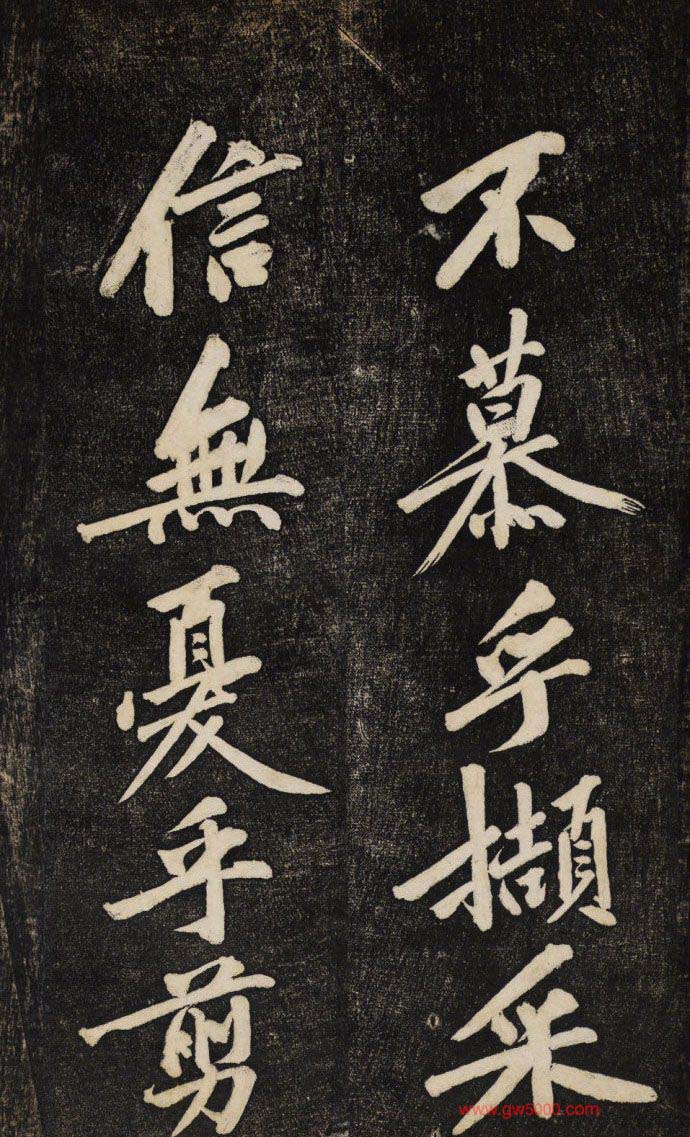 不慕乎擷采
信無憂乎剪
www.gw5000.com